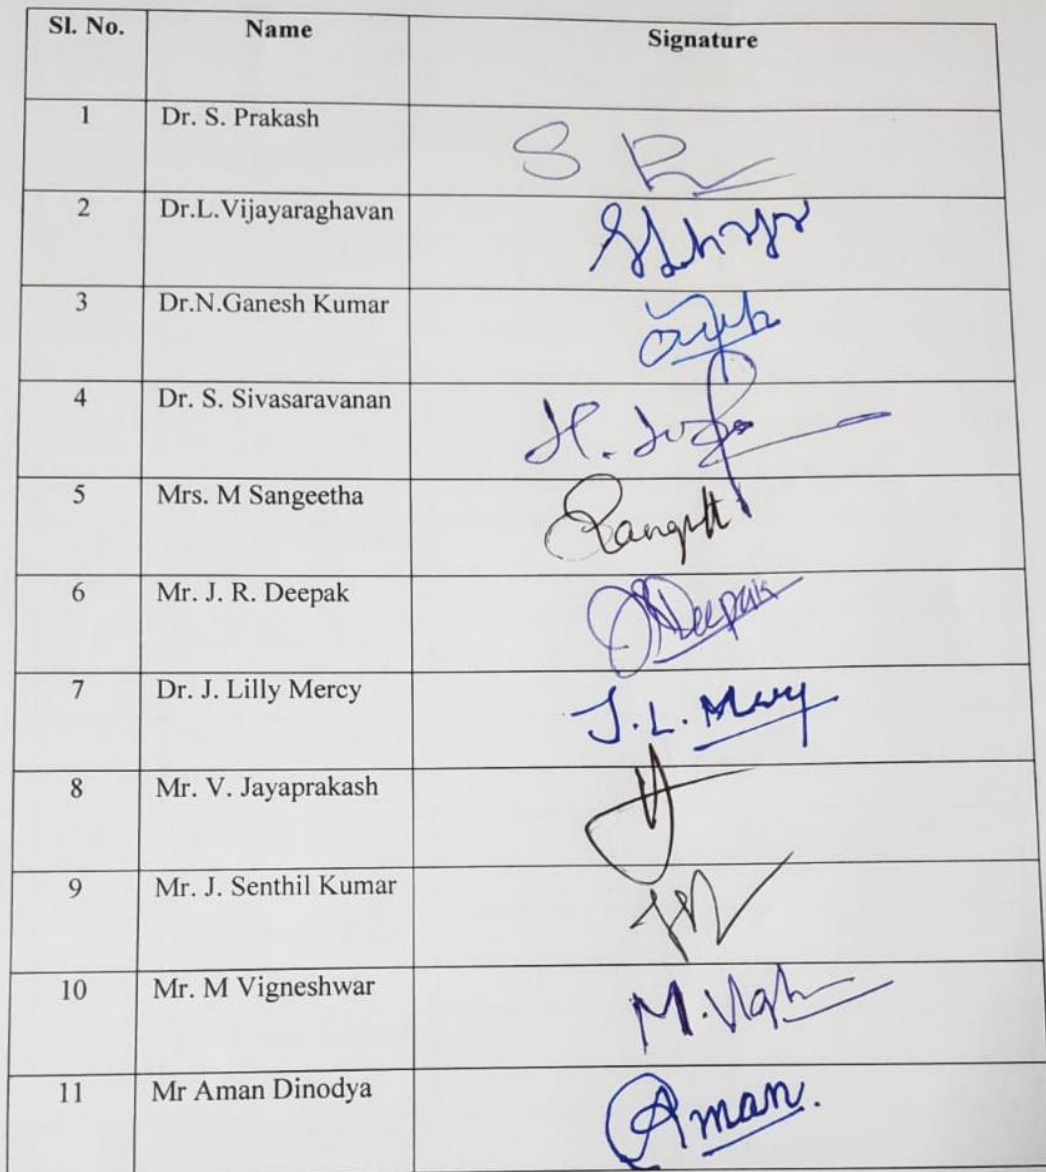 Sl. No. Name Signature
1 Dr. S. Prakash S
2 Dr.L.Vijayaraghavan
3 Dr.N.Ganesh Kumar
4 Dr. S. Sivasaravanan
5 Mrs. M Sangeetha
6 Mr. J. R. Deepak JRDeepak
7 Dr. J. Lilly Mercy J.L. Mercy
8 Mr. V. Jayaprakash
9 Mr. J. Senthil Kumar
10 Mr. M Vigneshwar
11 Mr Aman Dinodya Aman.